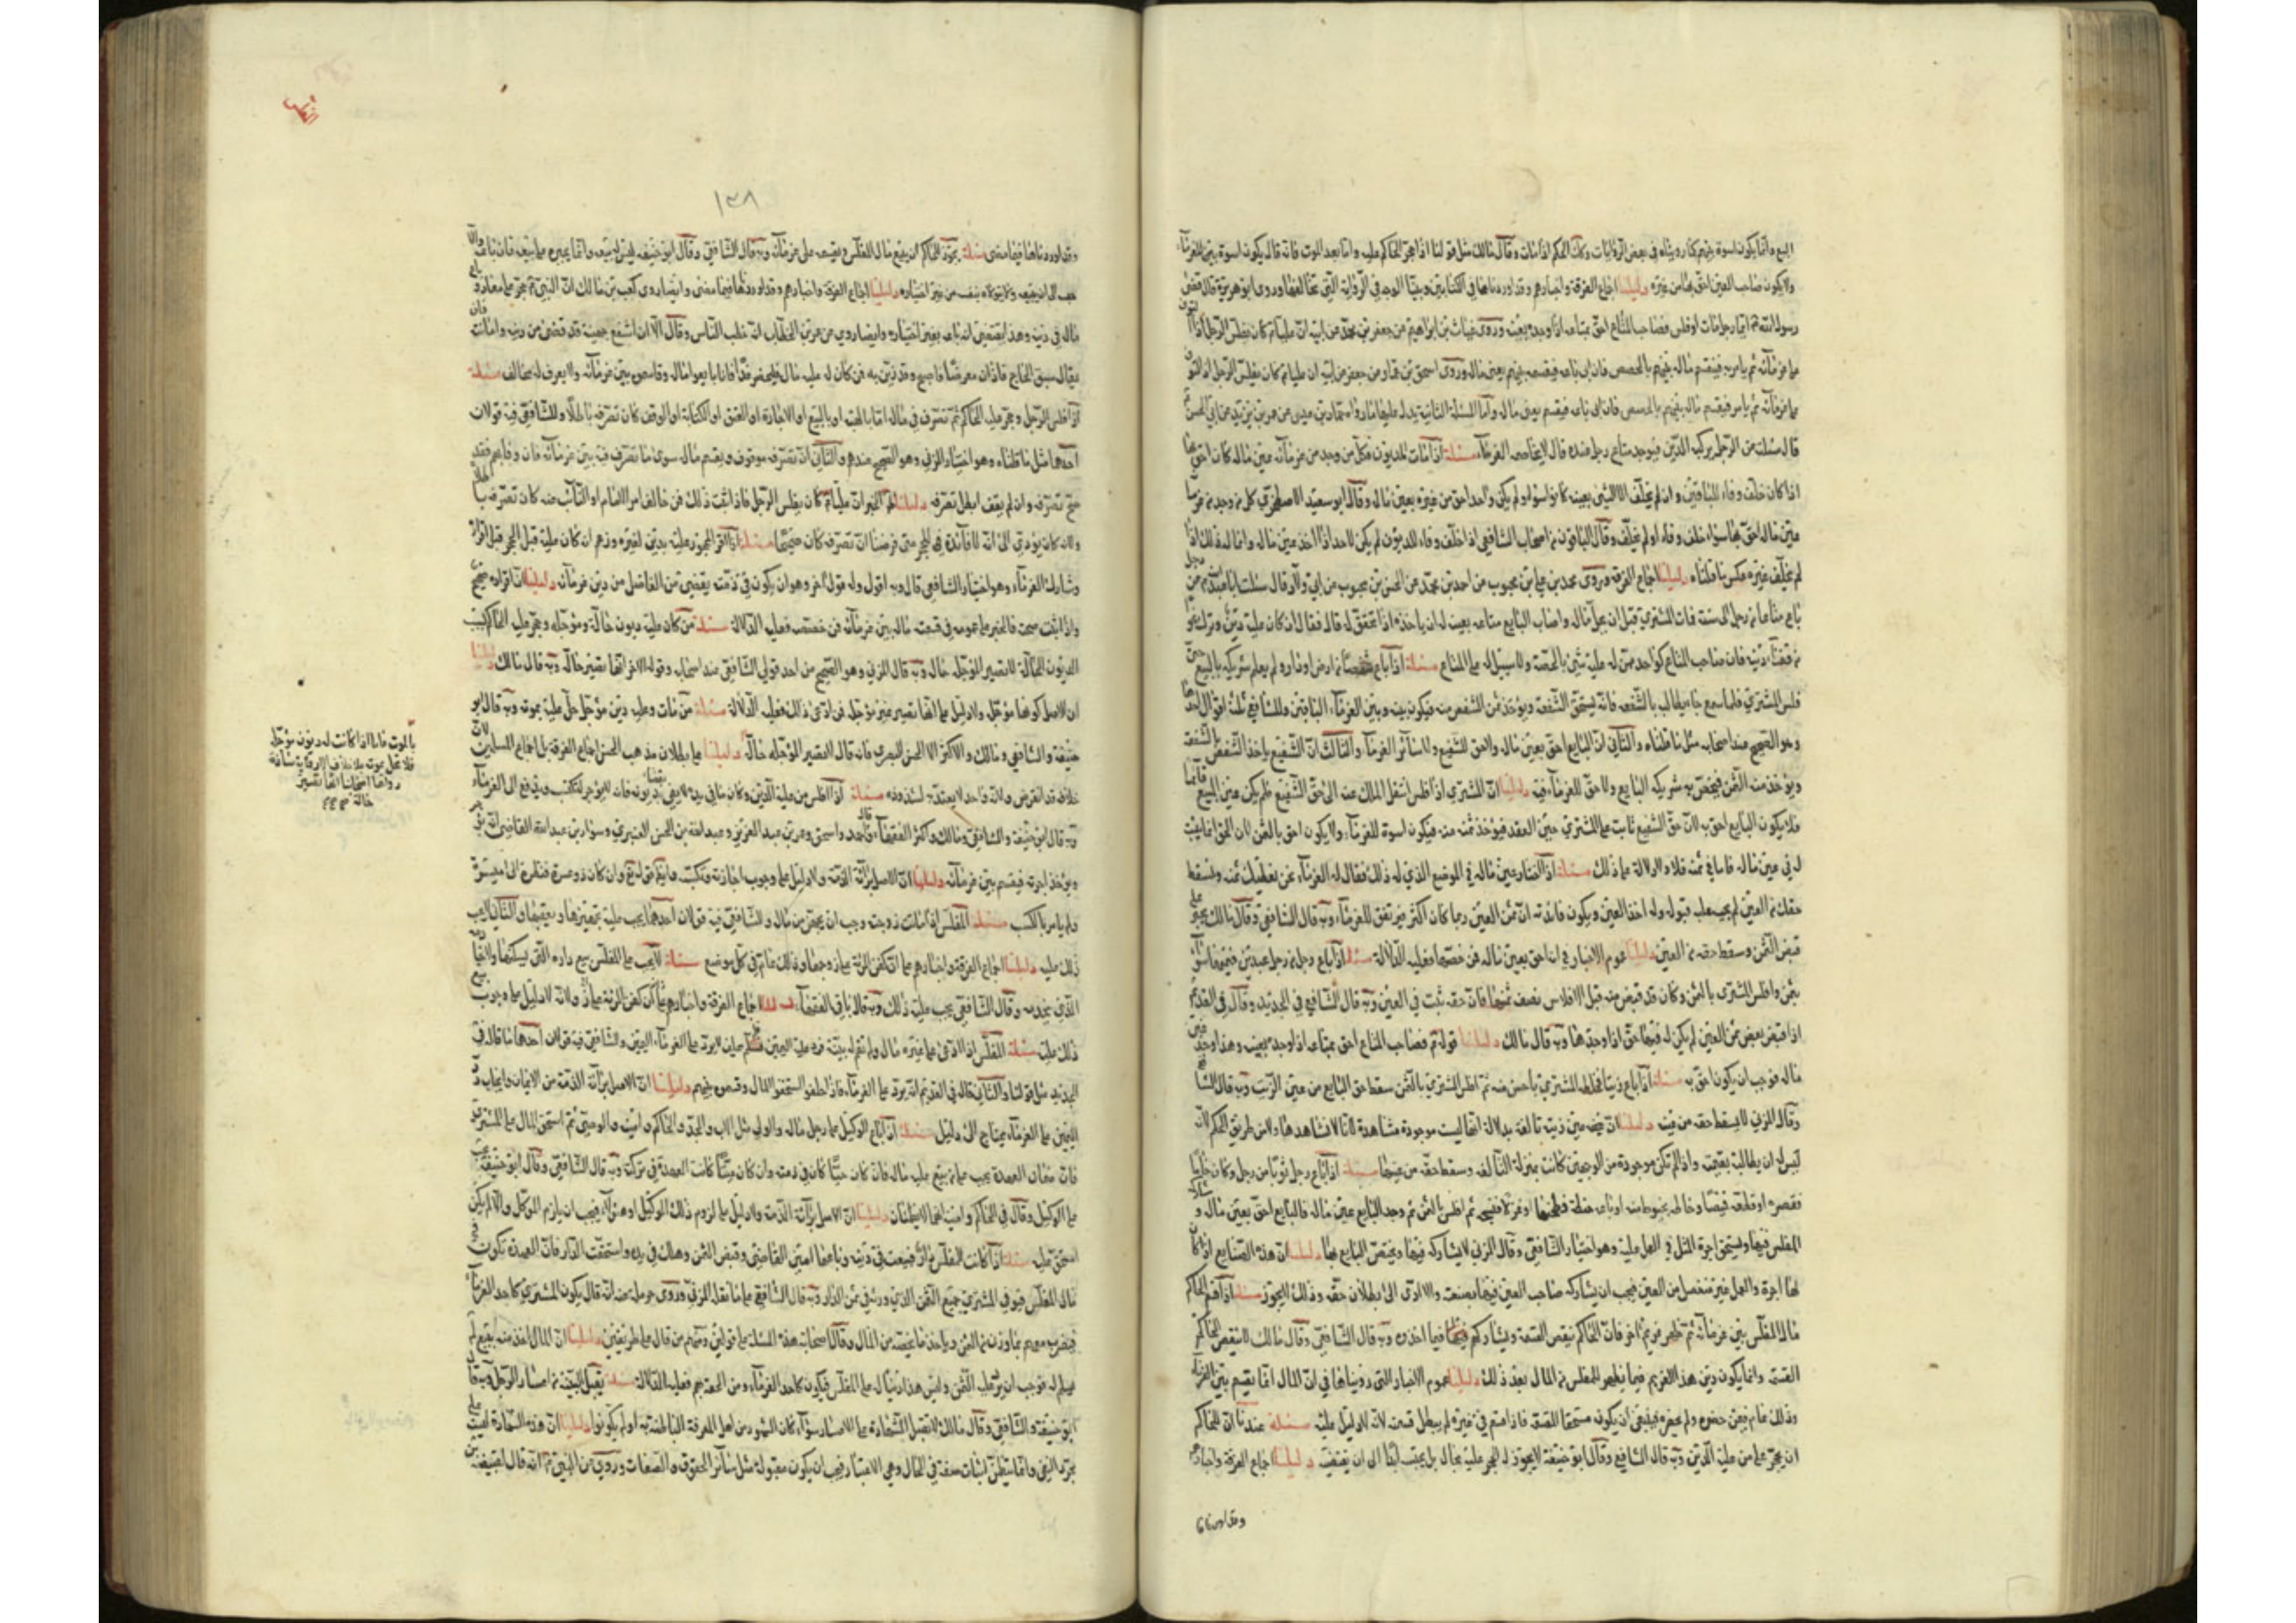 البيع وانما يكون اسوة بينهم كما رويناه في بعض الروايات وكك الحكم اذا مات وقال مالك مثل قولنا اذا حجر الحاكم عليه واما بعد الموت فانه قال يكون اسوة بين الغرماء
ولا يكون صاحب العين احق بها من غيره دليلنا اجماع الفرقة واخبارهم وقد اوردناها في الكتابين وبينا الوجه في الرواية التي تخالفها وروى ابو هريرة قال قضى
رسول الله ص ايما رجل مات او فلس فصاحب المتاع احق بمتاعه اذا وجده بعينه وروى غياث بن ابراهيم عن جعفر بن محمد عن ابيه ان عليا ع كان يفلس الرجل اذا التوى
على غرمائه ثم يامر به فيقسم ماله بينهم بالحصص فان ابى باعه فيقسمه بينهم يعني ماله وروى اسحق بن عمار عن جعفر عن ابيه ان عليا ع كان يفلس الرجل اذا التوى
على غرمائه ثم يامر فيقسم ماله بينهم بالحصص فان ابى باعه فيقسم يعني ماله واما المسئلة الثانية يدل عليها ما رواه حماد بن عيسى عن عمر بن يزيد عن ابي الحسن ع
قال سئلته عن الرجل يركبه الدين فيوجد متاع رجل عنده قال لا يحاصه الغرماء مسئلة اذا مات المديون فكل من وجد من غرمائه عين ماله كان احق بها
اذا كان خلف وفاء للباقين وان لم يخلف الا الشيء بعينه كانوا سواء ولم يكن واحد احق من غيره بعين ماله وقال ابو سعيد الاصطخري كل من وجد من غرمائه
عين ماله احق بها سواء خلف وفاء او لم يخلف وقال الباقون من اصحاب الشافعي اذا خلف وفاء للديون لم يكن لاحد اذا اخذ عين ماله وانما له ذلك اذا
لم يخلف غيره عكس ما قلناه دليلنا اجماع الفرقة وروى محمد بن علي بن محبوب عن احمد بن محمد عن الحسن بن محبوب عن ابي ولاد قال سئلت ابا عبد الله ع عن رجل
باع متاعا من رجل الى سنة فمات المشتري قبل ان يحل ماله واصاب البايع متاعه بعينه له ان ياخذه اذا تحقق له قال فقال ان كان عليه دين وترك نحوا
مسئلة اذا باع شقصا من ارض او دار ولم يعلم شريكه بالبيع حتى
فلس المشتري فلما سمع جاء يطالب بالشفعة فانه يستحق الشفعة ويؤخذ ثمن الشقص منه فيكون بينه وبين الغرماء الباقين وللشافعي ثلثة اقوال احدها
وهو الصحيح عند اصحابه مثل ما قلناه والثاني ان البايع احق بعين ماله ولا حق للشفيع ولا سائر الغرماء والثالث ان الشفيع ياخذ الشقص بالشفعة
ويؤخذ منه الثمن فيخص به شريكه البايع ولا حق للغرماء فيه دليلنا ان المشتري اذا فلس انتقل الملك عنه الى حق الشفيع فلم يكن عين المبيع قائما
فلا يكون البايع احق به لان حق الشفيع ثابت على المشتري حين العقد فيؤخذ ثمنه منه فيكون اسوة للغرماء ولا يكون احق بالثمن لان الحق انما يثبت
له في عين ماله فاما في ثمنه فلا دلالة على ذلك مسئلة اذا اختار عين ماله في الموضع الذي له ذلك فقال له الغرماء نحن نعطيك ثمنه ونسقط
حقك من العين لم يجب عليه قبوله وله اخذ العين ويكون فائدته ان ثمن العين ربما كان اكثر فيرتفق للغرماء وبه قال الشافعي وقال مالك يجبر على
قبض الثمن وسقط حقه من العين دليلنا عموم الاخبار في انه احق بعين ماله فمن خصصها فعليه الدلالة مسئلة اذا باع رجل من رجل عبدين قيمتهما سواء
بثمن وافلس المشتري بالثمن وكان قد قبض منه قبل الافلاس نصف ثمنهما فان حقه ثبت في العين وبه قال الشافعي في الجديد وقال في القديم
اذا قبض بعض ثمن العين لم يكن له فيهما حق اذا وجدهما وبه قال مالك دليلنا قوله ع فصاحب المتاع احق بمتاعه اذا وجده بعينه وهذا وجد عين
ماله فوجب ان يكون احق به مسئلة اذا باع زيتا فخلطه المشتري باحسن منه ثم افلس المشتري بالثمن سقط حق البايع من عين الزيت وبه قال الشافعي
وقال المزني لا يسقط حقه من عينه دليلنا ان عين زيته تالفة بدلالة انها ليست موجودة مشاهدة لانا لا نشاهدها ولا من طريق الحكم لانه
ليس له ان يطالب بقيمته واذا لم تكن موجودة من الوجهين كانت بمنزلة التالفة وسقط حقه من عينها مسئلة اذا باع رجل ثوبا من رجل وكان خاما
فقصره او قطعه قميصا وخاطه بخيوط منه او باعه حنطة فطحنها او غزلا فنسجه ثم افلس بالثمن ثم وجد البايع عين ماله فالبايع احق بعين ماله وشاركه
المفلس فيها ويستحق اجرة المثل في العمل عليه وهو اختيار الشافعي وقال المزني لا يشاركه فيها ويختص البايع بها دليلنا ان هذه الصنايع اذا كان
لها اجرة والعمل غير منفصل من العين فيجب ان يشاركه صاحب العين فيها بصنعته والا ادى الى بطلان حقه وذلك لا يجوز مسئلة اذا قسم الحاكم
مال المفلس بين غرمائه ثم ظهر غريم اخر فان الحاكم ينقض القسمة ويشاركهم فيما اخذوه وبه قال الشافعي وقال مالك لا ينقض الحاكم
القسمة وانما يكون دين هذا الغريم فيما يظهر للمفلس من المال بعد ذلك دليلنا عموم الاخبار التي رويناها في ان المال انما يقسم بين الغرماء
وذلك عام فيمن حضره ولم يحضره فينبغي ان يكون مستحقا للقسمة
مسئلة عندنا ان للحاكم
ان يحجر على من عليه الدين وبه قال الشافعي وقال ابو حنيفة لا يجوز له الحجر عليه بحال بل يحبسه ابدا الى ان يقضيه دليلنا اجماع الفرقة واخبارهم
وقد اوردناها
١٣٨
وقد اوردناها فيما مضى مسئلة يجوز للحاكم ان يبيع مال المفلس ويقسمه على غرمائه وبه قال الشافعي وقال ابو حنيفة ليس له بيعه وانما يجبره على بيعه فان باعه والا
حبسه الى ان يبيعه ولا يتولاه بنفسه من غير اختياره دليلنا اجماع الفرقة واخبارهم وقد اوردناها فيما مضى وايضا روى كعب بن مالك ان النبي ص حجر على معاذ وباع
ماله في دينه وهذا يقتضي انه باعه بغير اختياره وايضا روي عن عمر بن الخطاب انه خطب الناس وقال الا ان اسيفع جهينة قد رضي من دينه وامانته فان
يقال سبق الحاج فادان معرضا فاصبح وقد رين به فمن كان له عليه مال فليحضر غدا فانا بايعوا ماله وقاسموه بين غرمائه ولا يعرف له مخالف مسئلة
اذا افلس الرجل وحجر عليه الحاكم ثم تصرف في ماله اما بالهبة او بالبيع او الاجارة او العتق او الكتابة او الوقف كان تصرفه باطلا وللشافعي فيه قولان
احدهما مثل ما قلناه وهو اختيار المزني وهو الصحيح عندهم والثاني ان تصرفه موقوف ويقسم ماله سوى ما تصرف فيه بين غرمائه فان وفا بهم فقد
صح تصرفه وان لم يف ابطل تصرفه دليلنا الخبر ان عليا ع كان يفلس الرجل فاذا ثبت ذلك فمن خالف امر الامام او النائب عنه كان تصرفه باطلا
ولانه كان يؤدي الى انه لا فائدة في الحجر متى فرضنا ان تصرفه كان صحيحا مسئلة اذا اقر المحجور عليه بدين لغيره وزعم انه كان عليه قبل الحجر قبل اقراره
وشارك الغرماء وهو اختيار الشافعي قال وبه اقول وله قول اخر وهو ان يكون في ذمته يقضي من الفاضل من دين غرمائه دليلنا ان اقراره صحيح
واذا ثبت صحته فالخبر على عمومه في قسمة ماله بين غرمائه فمن خصصه فعليه الدلالة مسئلة من كان عليه ديون حالة ومؤجلة وحجر عليه الحاكم بسبب
الديون الحالة لا يصير المؤجل حالا وبه قال المزني وهو الصحيح من احد قولي الشافعي عند اصحابه وقوله الاخر انها تصير حالة وبه قال مالك دليلنا
ان الاصل كونها مؤجلة ولا دليل على انها تصير غير مؤجلة فمن ادعى ذلك فعليه الدلالة مسئلة من مات وعليه دين مؤجل حل عليه بموته وبه قال ابو
حنيفة والشافعي ومالك والاكثر الا الحسن البصري فانه قال لا تصير المؤجلة حالة دليلنا على بطلان مذهب الحسن اجماع الفرقة بل اجماع المسلمين لان
خلافه قد انقرض ولانه واحد لا يعتد به لشذوذه مسئلة اذا افلس من عليه الدين وكان ما في يده لا يفي بقضاء ديونه فانه لا يؤاجر ليكتسب ويدفع الى الغرماء
وبه قال ابو حنيفة والشافعي ومالك واكثر الفقهاء وقال احمد واسحق وعمر بن عبد العزيز وعبيد الله بن الحسن العنبري وسوار بن عبد الله القاضي انه يؤاجر
ويؤخذ اجرته فيقسم بين غرمائه دليلنا ان الاصل براءة الذمة ولا دليل على وجوب اجارته وتكسبه وايضا قوله تع وان كان ذو عسرة فنظرة الى ميسرة
ولم يامر بالكسب مسئلة المفلس اذا ماتت زوجته وجب ان يجهز من ماله وللشافعي فيه قولان احدهما يجب عليه تجهيزها وتكفينها والثاني لا يجب
ذلك عليه دليلنا اجماع الفرقة واخبارهم على ان كفن المرئة على زوجها وذلك عام في كل موضع مسئلة لا يجب على المفلس بيع داره التي يسكنها وخادمه
الذي يخدمه وقال الشافعي يجب عليه ذلك وبه قال باقي الفقهاء
ذلك عليه مسئلة المفلس اذا ادعى على غيره مالا ولم تقم له بينة
الجديد مثل قولنا والثاني قاله في القديم انه يرد على الغرماء فاذا حلفوا استحقوا المال وقسم بينهم دليلنا ان الاصل براءة الذمة من الايمان وايجاب رد
اليمين على الغرماء يحتاج الى دليل مسئلة اذا باع الوكيل على رجل ماله والولي مثل الاب والجد والحاكم وامينه والوصي ثم استحق المال على المشتري
فان ضمان العهدة يجب على من بيع عليه ماله فان كان حيا كان في ذمته وان كان ميتا كانت العهدة في تركته وبه قال الشافعي وقال ابو حنيفة يجب
على الوكيل وقال في الحاكم وامينه انهما لا يضمنان دليلنا ان الاصل براءة الذمة ولا دليل على لزوم ذلك الوكيل او هؤلاء فيجب ان يلزم الموكل والا لم يكن
استحق عليه مسئلة اذا كانت للمفلس دار فبيعت في دينه وباعها امين القاضي وقبض الثمن وهلك في يده واستحقت الدار فان العهدة تكون في
مال المفلس فيوفي المشتري جميع الثمن الذي وزنه في ثمن الدار وبه قال الشافعي على ما نقله المزني وروى حرملة عنه انه قال يكون المشتري كاحد الغرماء
فيضرب معهم بما وزن من الثمن وياخذ ما يخصه من المال وقال اصحابه هذه المسئلة على قولين ومنهم من قال على طريقين دليلنا ان المال اخذ منه ببيع لم
يسلم له فوجب ان يرد عليه الثمن وليس هذا دينا له على المفلس فيكون كاحد الغرماء ومن الحقه بهم فعليه الدلالة مسئلة يقبل البينة على اعسار الرجل وبه قال
ابو حنيفة والشافعي وقال مالك لا تقبل الشهادة على الاعسار سواء كان الشهود من اهل المعرفة الباطنة به او لم يكونوا دليلنا ان هذه الشهادة ليست على
مجرد النفي وانما يتضمن اثبات صفة في الحال وهي الاعسار فيجب ان يكون مقبولة مثل سائر الحقوق والصفات وروي عن النبي ص انه قال لقبيصة بن
بالموت فاما اذا كانت له ديون مؤجلة
فلا تحل بموته بلا خلاف الا رواية شاذة
رواها اصحابنا انها تصير
حالة